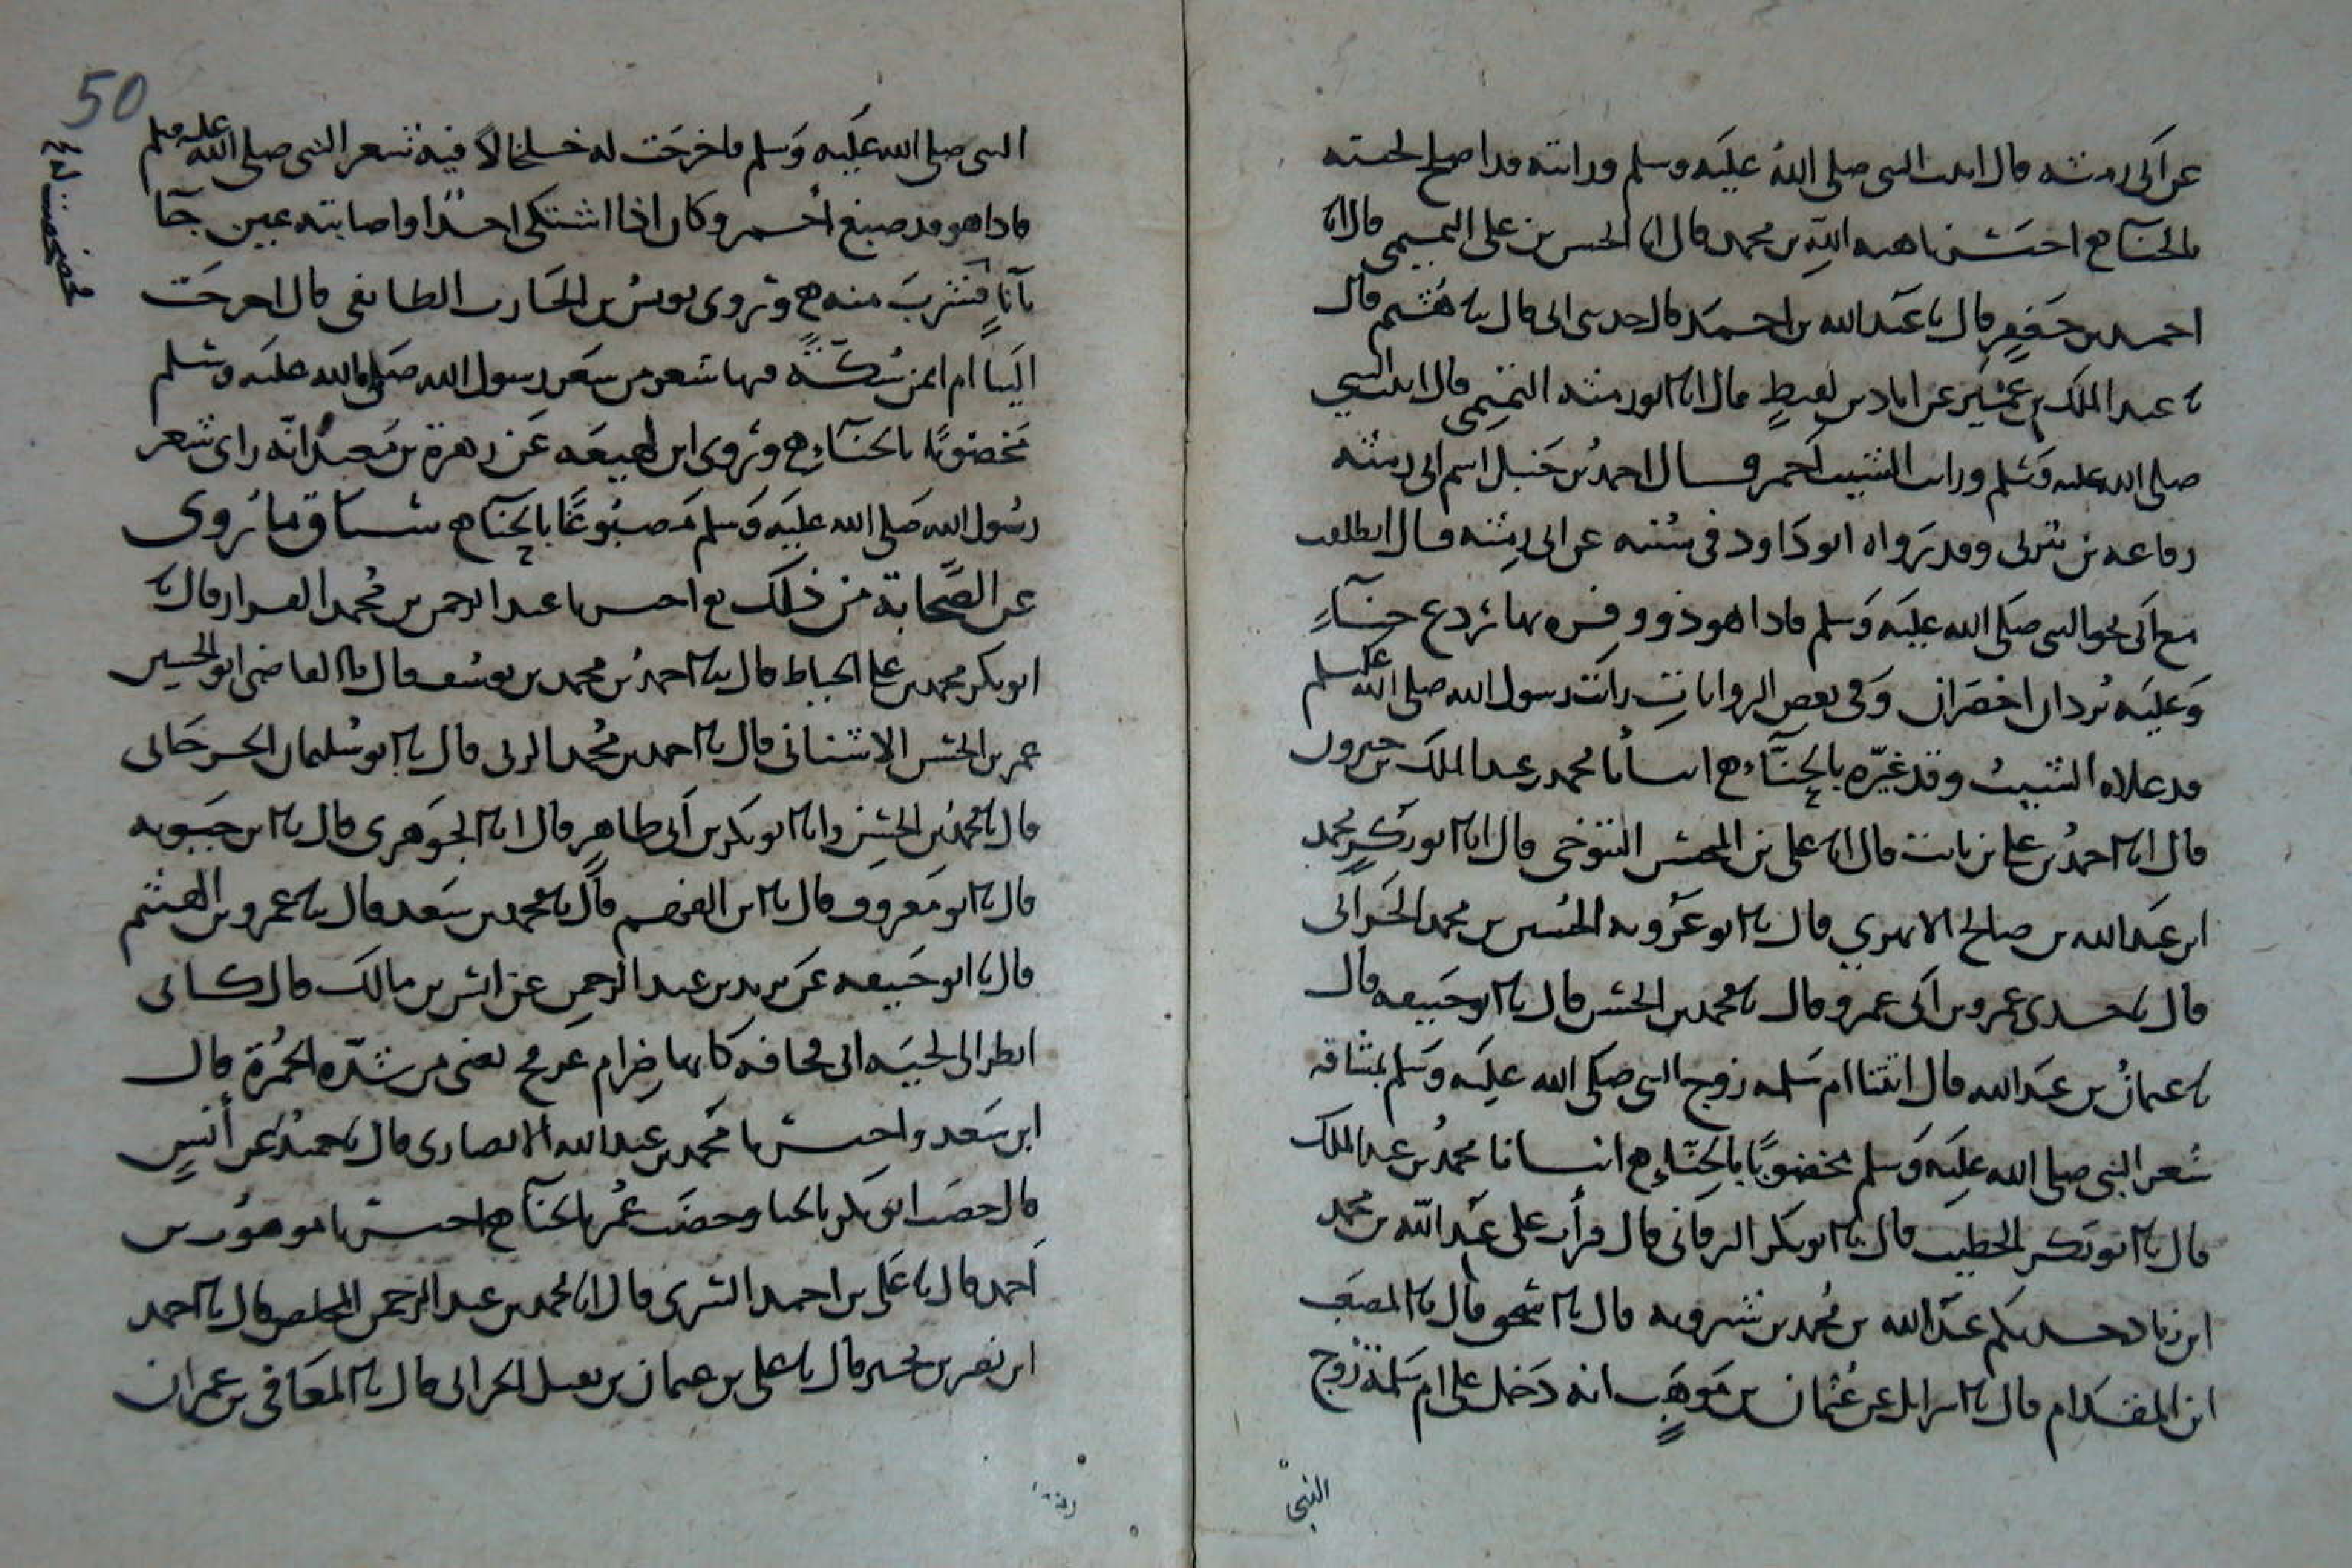 عن ابى رمثه قال اتيت النبى صلى الله عليه وسلم ورايته قد اصلح لحيته
بالحناء اخبرنا هبه الله بن محمد قال انا الحسن بن على التميمى قال انا
احمد بن جعفر قال نا عبد الله بن احمد قال حدثنى ابى قال نا هشيم قال
نا عبد الملك بن عمير عن اياد بن لقيط قال انا ابو رمثه التيمى قال اتيت النبي
صلى الله عليه وسلم ورايت الشيب احمر وقال احمد بن حنبل اسم ابى رمثه
رفاعه بن يثربى وقد رواه ابو داود فى سننه عن ابى رمثه قال انطلقت
مع ابى نحو النبى صلى الله عليه وسلم فاذا هو ذو وفره بها ردع حناء
وعليه بردان اخضران وفى بعض الروايات رايت رسول الله صلى الله عليه وسلم
قد علاه الشيب وقد غيّره بالحناء انبأنا محمد بن عبد الملك بن خيرون
قال انا احمد بن على بن ثابت قال انا على بن المحسن التنوخى قال انا ابو بكر محمد
ابن عبد الله بن صالح الابهري قال نا ابو عروبه الحسين بن محمد الحرانى
قال نا جدى عمرو بن ابى عمرو قال نا محمد بن الحسن قال نا ابو حنيفه قال
نا عثمان بن عبد الله قال اتتنا ام سلمه زوج النبى صلى الله عليه وسلم بمشاقه
شعر النبى صلى الله عليه وسلم مخضوبًا بالحنّاء انبأنا محمد بن عبد الملك
قال نا ابو بكر الخطيب قال نا ابو بكر البرقانى قال قرأت على عبد الله بن محمد
ابن زياد حدثكم عبد الله بن محمد بن شيرويه قال نا اسحق قال نا المصعب
ابن المقدام قال نا اسرايل عن عثمان بن موهب انه دخل على ام سلمة زوج
النبى
50
النبى صلى الله عليه وسلم فاخرجت له خلخالا فيه شعر النبى صلى الله عليه وسلم
فاذا هو قد صبغ أحمر وكان اذا اشتكى احدًا واصابته عين جآ
بآناءٍ فشرب منه وروى يونس بن الحارث الطايفى قال اخرجت
الينا ام ايمن سكّةً فيها شعر من شعر رسول الله صلى الله عليه وسلم
مخضوبًا بالحناء وروى ابن لهيعه عن زهرة بن معبد انّه راى شعر
رسول الله صلى الله عليه وسلم مصبوغًا بالحنآء سياق ما روى
عن الصّحابة من ذلك اخبرنا عبد الرحمن بن محمد القزاز قال نا
ابو بكر محمد بن على الخياط قال نا احمد بن محمد بن يوسف قال نا القاضى ابو الحسين
عمر بن الحسن الاشنانى قال نا احمد بن محمد البرتى قال نا ابو سليمان الجوزجانى
قال نا محمد بن الحسن وانا ابو بكر بن أبى طاهر قال انا الجوهرى قال نا ابن حيويه
قال نا ابن معروف قال نا ابن الفهم قال نا محمد بن سعد قال نا عمرو بن الهيثم
قال نا ابو حنيفه عن يزيد بن عبد الرحمن عن انس بن مالك قال كانى
انظر الى لحيه ابى قحافه كانها ضرام عرفج يعنى من شدّه الحمرة قال
ابن سعد واخبرنا محمد بن عبد الله الانصارى قال نا حميد عن أنس
قال خضب ابو بكر بالحنا وخضب عمر بالحنآ اخبرنا موهوب بن
احمد قال نا على بن احمد البسرى قال انا محمد بن عبد الرحمن المخلص قال نا احمد
ابن نصر بن بحير قال نا على بن عثمان بن نفيل الحرانى قال نا المعافى بن عمران